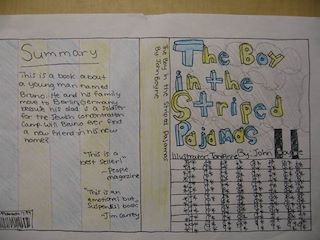 Summary
This is a book about
a young man named
Bruno. He and his family
move to Berlin, Germany
because his dad is a soldier
for the Jewish concentration
camp. Will Bruno ever find
a new friend in his new
home?
"This is a
best seller!"
-People
magazine
"This is an
emotional but
suspensful book"
-Jim Carrey
The Boy in the Striped Pajamas
By: John Boyne
The Boy
in the
Striped
Pajamas
By: John Boyne